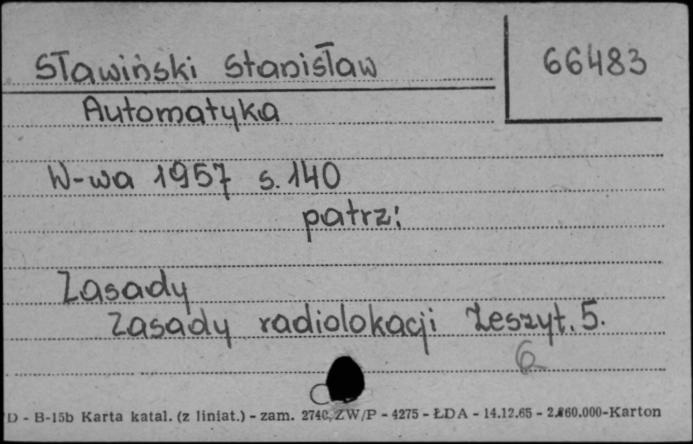 Sławiński Stanisław
66483
Automatyka
W-wa 1957 s. 140
patrz:
Zasady
Zasady radiolokacji Zeszyt. 5.
6
D - B-15b Karta katal. (z liniat.) - zam. 2740, ZW/P - 4275 - ŁDA - 14.12.65 - 2.860.000-Karton